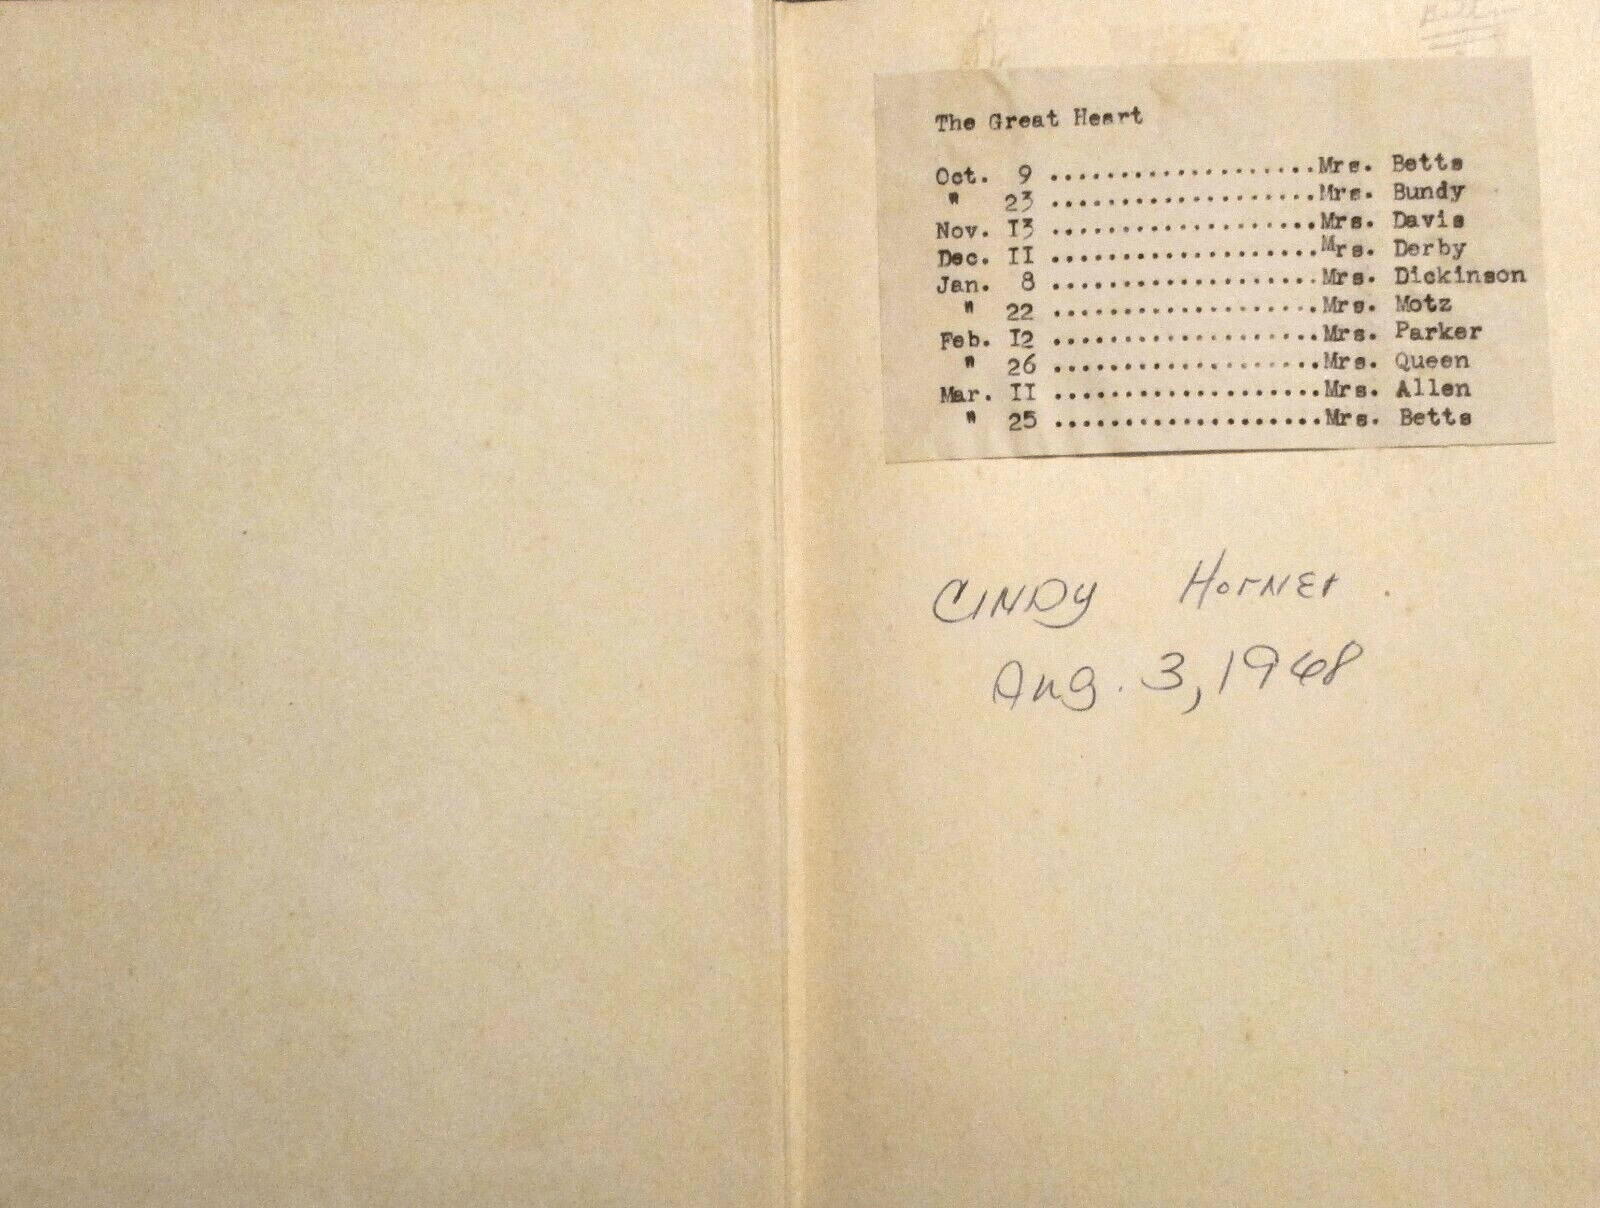 The Great Heart
Oct. 9 ...................Mrs. Betts
" 23 ...................Mrs. Bundy
Nov. I3 ...................Mrs. Davis
Dec. II ...................Mrs. Derby
Jan. 8 ...................Mrs. Dickinson
" 22 ...................Mrs. Motz
Feb. I2 ...................Mrs. Parker
" 26 ...................Mrs. Queen
Mar. II ...................Mrs. Allen
" 25 ...................Mrs. Betts
CINDY HorNEr
Aug. 3, 1968